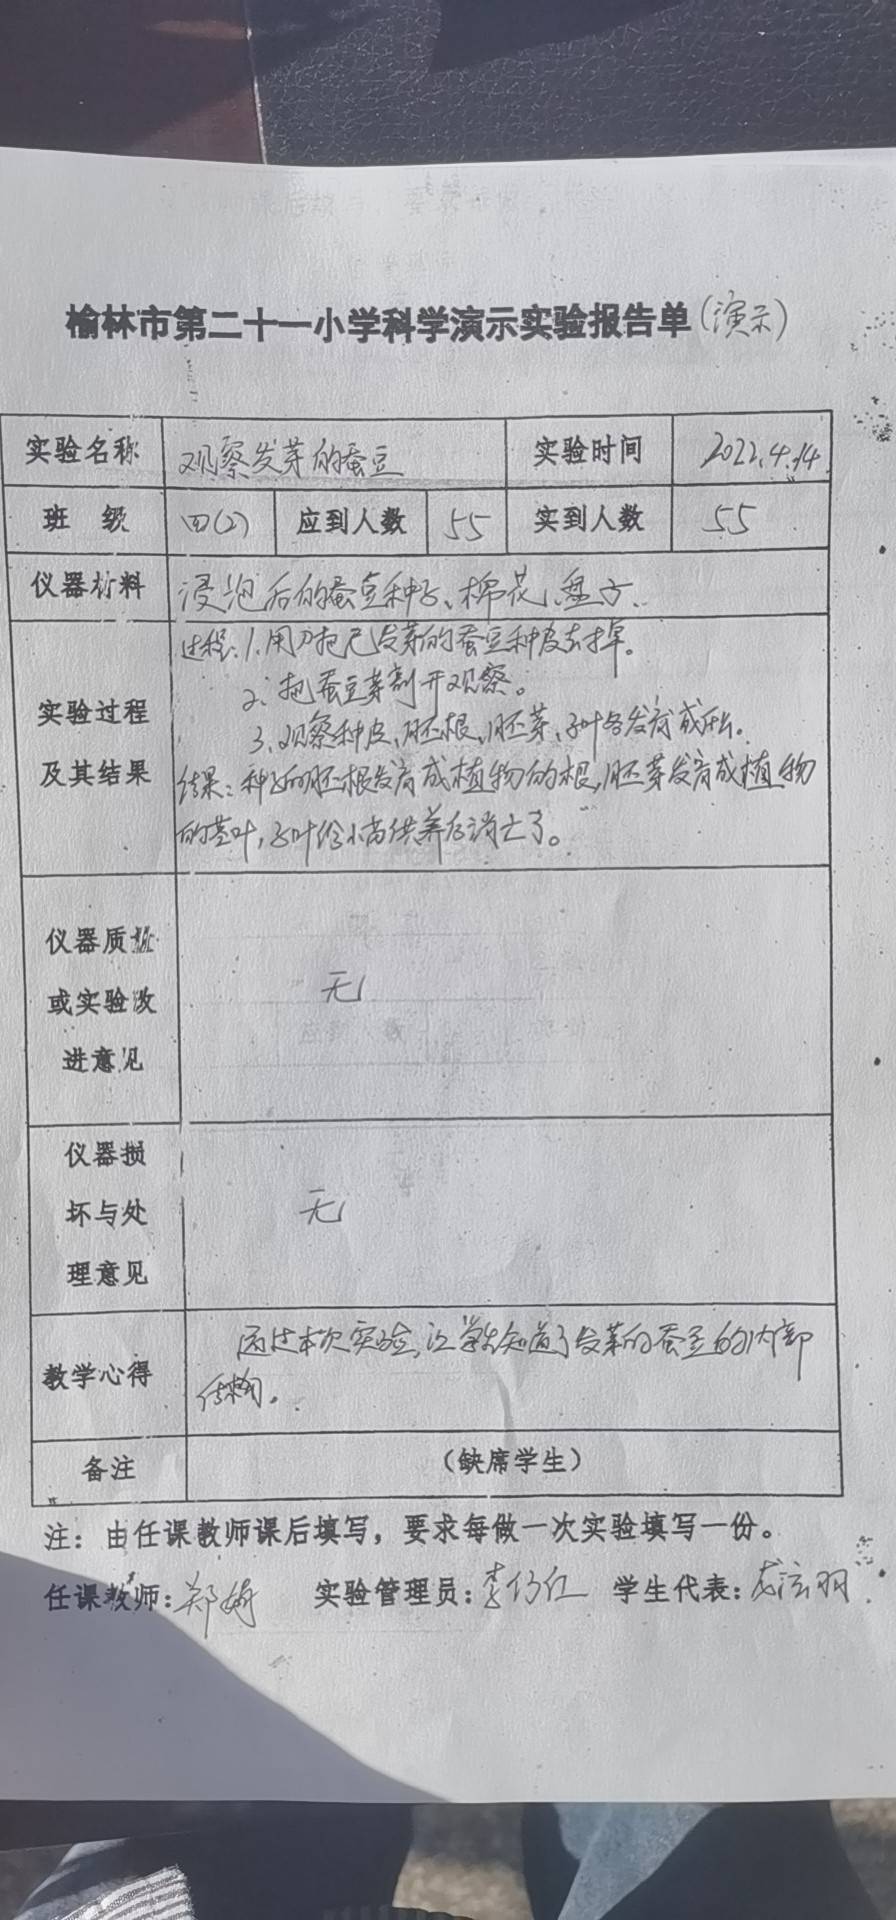 榆林市第二十一小学科学演示实验报告单(演示)
实验名称 观察发芽的蚕豆 实验时间 2022.4.14
班 级 四(2) 应到人数 55 实到人数 55
仪器材料 浸泡后的蚕豆种子、棉花、盘子.
过程:1.用刀把已发芽的蚕豆种皮去掉。
2.把蚕豆芽剖开观察。
实验过程 3.观察种皮、胚根、胚芽、子叶各发育成什么.
及其结果 结果:种子的胚根发育成植物的根,胚芽发育成植物
的茎叶,子叶给小苗供养后消亡了。
仪器质量
或实验改 无
进意见
仪器损
坏与处 无
理意见
通过本次实验,让学生知道了发芽的蚕豆的内部
教学心得 结构。
备注 (缺席学生)
注:由任课教师课后填写,要求每做一次实验填写一份。
任课教师:郑 实验管理员:李 学生代表: